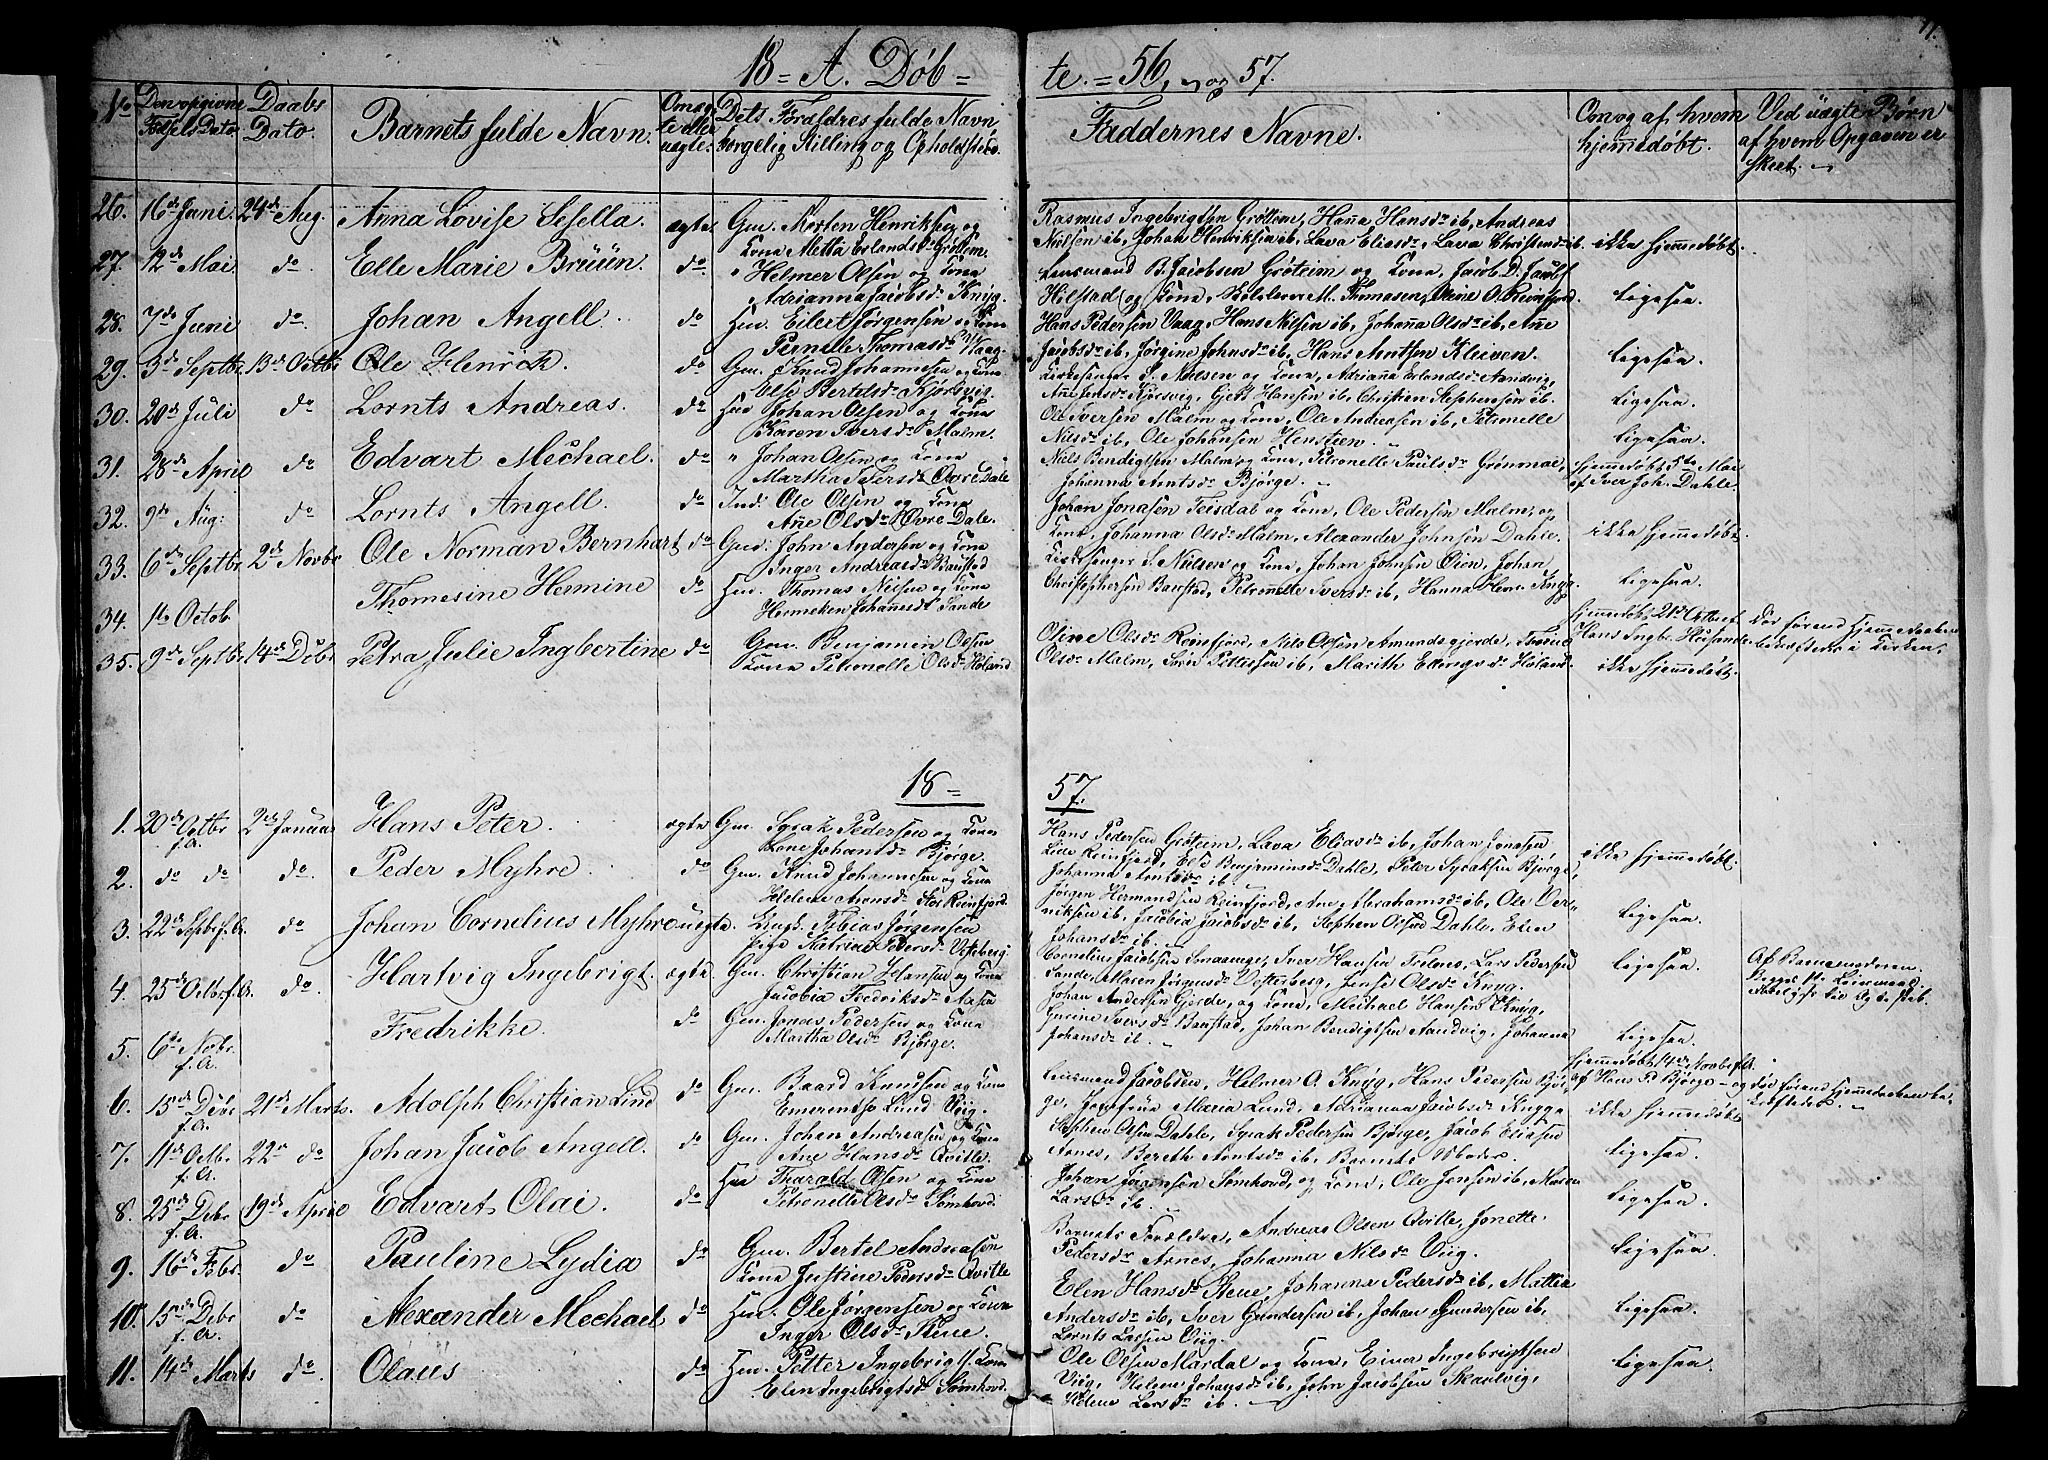 11.
18 = A. Döb = te. = 56, og 57.
No
Den opgivne Fødsels Dato
Daabs Dato.
Barnets fulde Navn.
Om ægte eller uægte.
Dets Forældres fulde Navn borgelig Stilling og Opholdsted.
Faddernes Navne.
Om og af hvem hjemedøbt.
Ved uægte Børn af hvem Opgaven er skeet.
26. 16de Juni. 24de Aug. Anna Lovise Sesella. ægte Gm. Morten Henriksen og
Kone Metta Erlandsdr Grøttem.
Rasmus Ingebrigtsen Grøttem, Hana Hansdr ib, Andreas
Nilsen ib, Johan Henriksen ib, Lava Eliasdr, Lava Christensdr ib. ikke hjemmedøbt.
27. 12de Mai do. Elle Marie Brüün. do. " Helmer Olsen og Kone
Adrianna Jacobsdr Knyg.
Lensmand B. Jacobsen Grøteim og Kone, Jacob D. Jacobs
Hilstad og Kone, M. Thomasen, Reinfjord. Ligesaa.
28. 7de Juni do. Johan Angell. do Hm. Eilert Jørgensen og Kone
Pernelle Thomasdr Vaag.
Hans Pedersen Vaag, Hans Nilsen ib, Johana Olsdr ib, Ane
Jacobsdr ib, Jørgine Johnsdr ib, Hans Arntsen Kleiven. Ligesaa.
29. 3de Septbr. 13de Octbr Ole Henrick. do Gm. Knud Johannesen og Kone
Else Bertelsdr Kjørsvig.
Kirkesanger S. Nielsen og Kone, Adriana Erlandsdr Aandvig,
Kjørsvig, Gjert Hansen ib, Christen Stephensen ib. Ligesaa.
30. 20de Juli do Lornts Andreas. do Hm Johan Olsen og Kone
Karen Iversdr Malm.
Ole Iversen Malm og Kone, Ole Andreasen ib, Petronelle
Nilsdr ib, Ole Johansen Henstien. Ligesaa.
31. 28de April do Edvart Mechael. do " Johan Olsen og Kone
Martha Petersdr Øvre Dale
Niels Bendigtsen Malm og Kone, Petronelle Paulsdr Grønmoe,
Johanna Arntsdr Bjørge. hjemmedøbt 5te Mai
af Iver Joh. Dahle.
32. 9de Aug: do Lornts Angell. do Ind: Ole Olsen og Kone
Ane Olsdr Øvre Dale.
Johan Jonasen Teisdal og Kone, Ole Pedersen Malm, og
Kone, Johanna Olsdr Malm, Alexander Johnsen Dahle. ikke hjemmedøbt.
33. 6de Septbr 2de Novbr Ole Norman Bernhart do Gm. John Andersen og Kone
Inger Andreasdr Baustad
Kirkesanger S. Nielsen og Kone, Johan Johnsen Øien, Johan
Christophersen Baustad, Petronelle Iversdr ib, Hanna Knyg. Ligesaa.
34. 1te Octob Thomesine Hermine do Hm. Thomas Nilsen og Kone
Henneken Johanesdr Sande
hjemmedøbt 21de Octbr af
Hans Ingbr. Husande Dør førend hjemmedaaben
bekræftedes i Kirken.
35. 9de Septbr. 14de Debr. Petra Julie Ingbertine do Gm. Benjamin Olsen
Kone Petronelle Olsdr Høland
Oline Olsdr Reinfjord, Nils Olsen Amundsgjerde,
Olsdr Malm, Søren Pettersen ib, Marith Ellingsdr Høland. ikke hjemmedøbt.
18 = 57.
1. 20de Octbr f. A. 2den Januar Hans Peter. ægte Gm. Syrak Pedersen og Kone
Lene Johansdr Bjørge.
Hans Pedersen Grøteim, Lava Eliasdr ib, Johan Jonasen
Lille Reinfjord, Else Benjaminsdr Dahle, Peter Syraksen Bjørge,
Johanna Arntsdr ib. ikke hjemmedøbt.
2. do do do. Peder Myhre. do Gm. Knud Johannesen og Kone
Helene Arensdr Stor Reinfjord.
Jørgen Hermandsen Reinfjord, Ane Abrahamsdr ib, Ole
niksen ib, Jacobia Jacobsdr ib, Stephen Olsen Dahle, Elen
Johansdr ib. Ligesaa.
3. 22de Septbr f. A. do Johan Cornelius Myhre uægte. Ungk. Tobias Jørgensen
Pige Katrine Pedersdr Vesteberg.
Cornelius Jacobsen, Iver Hansen, Lars Pedersen
Sande, Maren Jørgensdr Vesterberg, Jense Olsdr Knyg. Ligesaa. Af Barnemoderen.
Begges 1te Leiermaal
4. 25de Octbr f. A. do. Hartvig Ingebrigt. ægte. Gm. Christian Hansen og Kone
Jacobia Fredriksdr
Johan Andersen Gjerde, og Kone, Mechael Hansen Knyg,
Gurine Iversdr Baustad, Johan Bendigtsen Aandvig, Johanna
Johansdr ib. Ligesaa.
5. 6te Nobr. f. A. Fredrikke. do Gm. Jonas Pedersen og Kone
Martha Olsdr Bjørge.
hjemmedøbt 14de Novbr f. A.
af Hans P. Bjørge og døe førend hjemmedaaben be-
kræftedes.
6. 15de Debr f. A. 21de Marts. Adolph Christian Lind do Gm. Baard Knudsen og Kone
Lund Viig.
Lensmand Jacobsen, Helmer O. Knyg, Hans Pedersen Bjør-
ge, Jomfrue Maria Lund, Adrianna Jacobsdr Knygge ikke hjemmedøbt
7. 11de Octbr. f. A. 22de do Johan Jacob Angell. do Gm. Johan Andreasen og Kone
Ane Hansdr Qville.
Stephen Olsen Dahle, Syrak Pedersen Bjørge, Jacob Eliasen
Arnes, Bereth Arntsdr ib, Barnets Moder. Ligesaa.
8. 25de Debr f. A. 19de April Edvart Olai. do Hm Tharald Olsen og Kone
Petronelle Olsdr Somhovd.
Johan Jørgensen Somhovd, og Kone, Ole Jensen ib, Maren
Larsdr ib. Ligesaa.
9. 16de Febr. do Pauline Lydia do Gm. Bertel Andreasen
Kone Justine Pedersdr Qville
Barnets Forældre, Andreas Olsen Qville, Jonette
Pedersdr Arnes, Johanna Nilsdr Viig. Ligesaa.
10. 15de Debr f. A. do Alexander Mechael do Hm. Ole Jørgensen og Kone
Inger Olsdr Stene.
Elen Hansdr Stene, Johanna Pedersdr ib, Mattea
Andersdr ib, Iver Gundersen ib, Johan Gundersen ib,
Lornts Larsen Viig. Ligesaa.
11. 14de Marts do. Olaus do Hm. Petter Ingebrigts. Kone
Elen Ingebrigtsdr Somhovd.
Ole Olsen Mardal og Kone, Einer Ingebrigtsen
Viig, Helene Johansdr ib, John Jacobsen Skaalvig,
Helene Larsdr ib. Ligesaa.